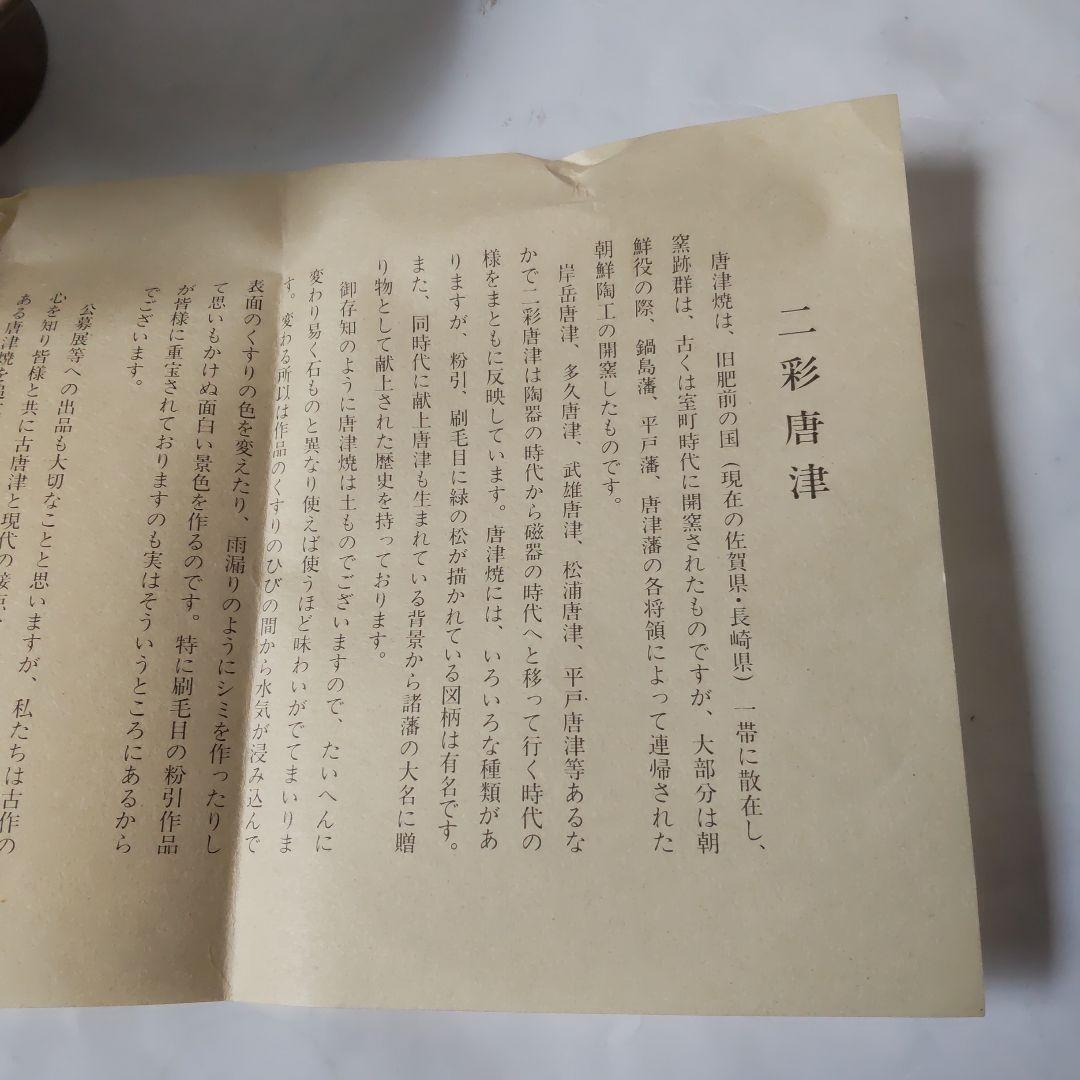 二彩唐津
唐津焼は、旧肥前の国（現在の佐賀県・長崎県）一帯に散在し、
窯跡群は、古くは室町時代に開窯されたものですが、大部分は朝
鮮役の際、鍋島藩、平戸藩、唐津藩の各将領によって連帰された
朝鮮陶工の開窯したものです。
岸岳唐津、多久唐津、武雄唐津、松浦唐津、平戸唐津等あるな
かで二彩唐津は陶器の時代から磁器の時代へと移って行く時代の
様をまともに反映しています。唐津焼には、いろいろな種類があ
りますが、粉引、刷毛目に緑の松が描かれている図柄は有名です。
また、同時代に献上唐津も生まれている背景から諸藩の大名に贈
り物として献上された歴史を持っております。
御存知のように唐津焼は土ものでございますので、たいへんに
変わり易く石ものと異なり使えば使うほど味わいがでてまいりま
す。変わる所以は作品のくすりのひびの間から水気が浸み込んで
表面のくすりの色を変えたり、雨漏りのようにシミを作ったりし
て思いもかけぬ面白い景色を作るのです。特に刷毛目の粉引作品
が皆様に重宝されておりますのも実はそういうところにあるから
でございます。
公募展等への出品も大切なことと思いますが、私たちは古作の
心を知り皆様と共に古唐津と現代の接点
ある唐津焼を